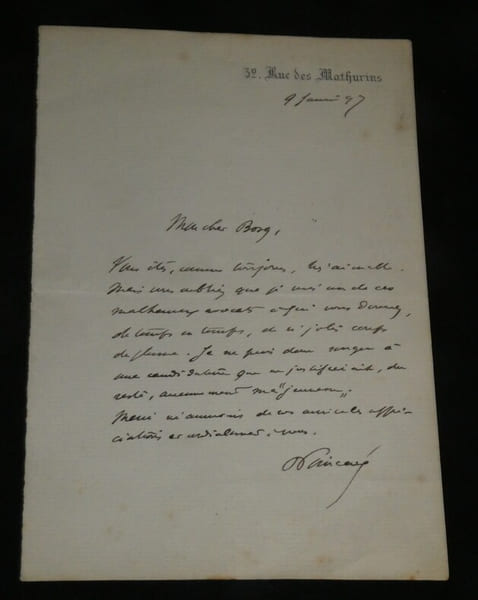 32. Rue des Mathurins
9 janvier 97
Mon cher Bosq,
Vous êtes, comme toujours, très aimable.
Mais vous oubliez que je suis un de ces
malheureux avocats à qui vous donnez,
de temps en temps, de si jolis coups
de plume. Je ne puis donc songer à
une candidature que ne justifierait, du
reste, aucunement ma "jeunesse".
Merci néanmoins de vos amicales appré-
ciations et cordialement à vous.
Poincaré